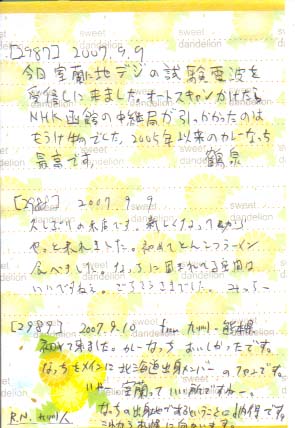 [2987] 2007.9.9
今日室蘭に地デジの試験電波を
受信しに来ました。オートスキャンかけたら
NHK函館の中継局が引っかかったのは
もうけ物でした。2005年以来のカレーなっち
最高です。 鶴泉
2007.9.9
久しぶりの来店です。新しくなってから
やっと来れました。初めてとんこつラーメン
食べました。なっちに囲まれてる空間は
いいですねぇ。ごちそうさまでした。 みっちー
[2989] 2007.9.10 from 九州・熊本
初めて来ました。カレーなっち おいしかったです。
なっちをメインに北海道出身メンバーのファンです。
いやー 室蘭っていい所ですねー。
なっちの出身地であるということに納得です。
R.N. 九州人
sweet dandelion